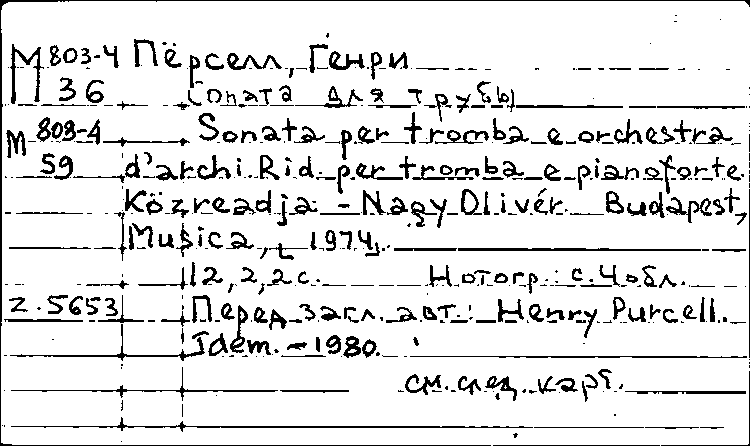 М 803-4 Пёрселл, Генри
36 Соната для трубы
М 808-4 Sonata per tromba e orchestra
59 d'archi. Rid. per tromba e pianoforte
Közreadja - Nagy Olivér. Budapest,
Musica, [1974].
12, 2, 2 с. Нотогр.: с. 4 обл.
Z.5653 Перед загл. авт.: Henry Purcell.
Idem. - 1980.
см. след. карт.